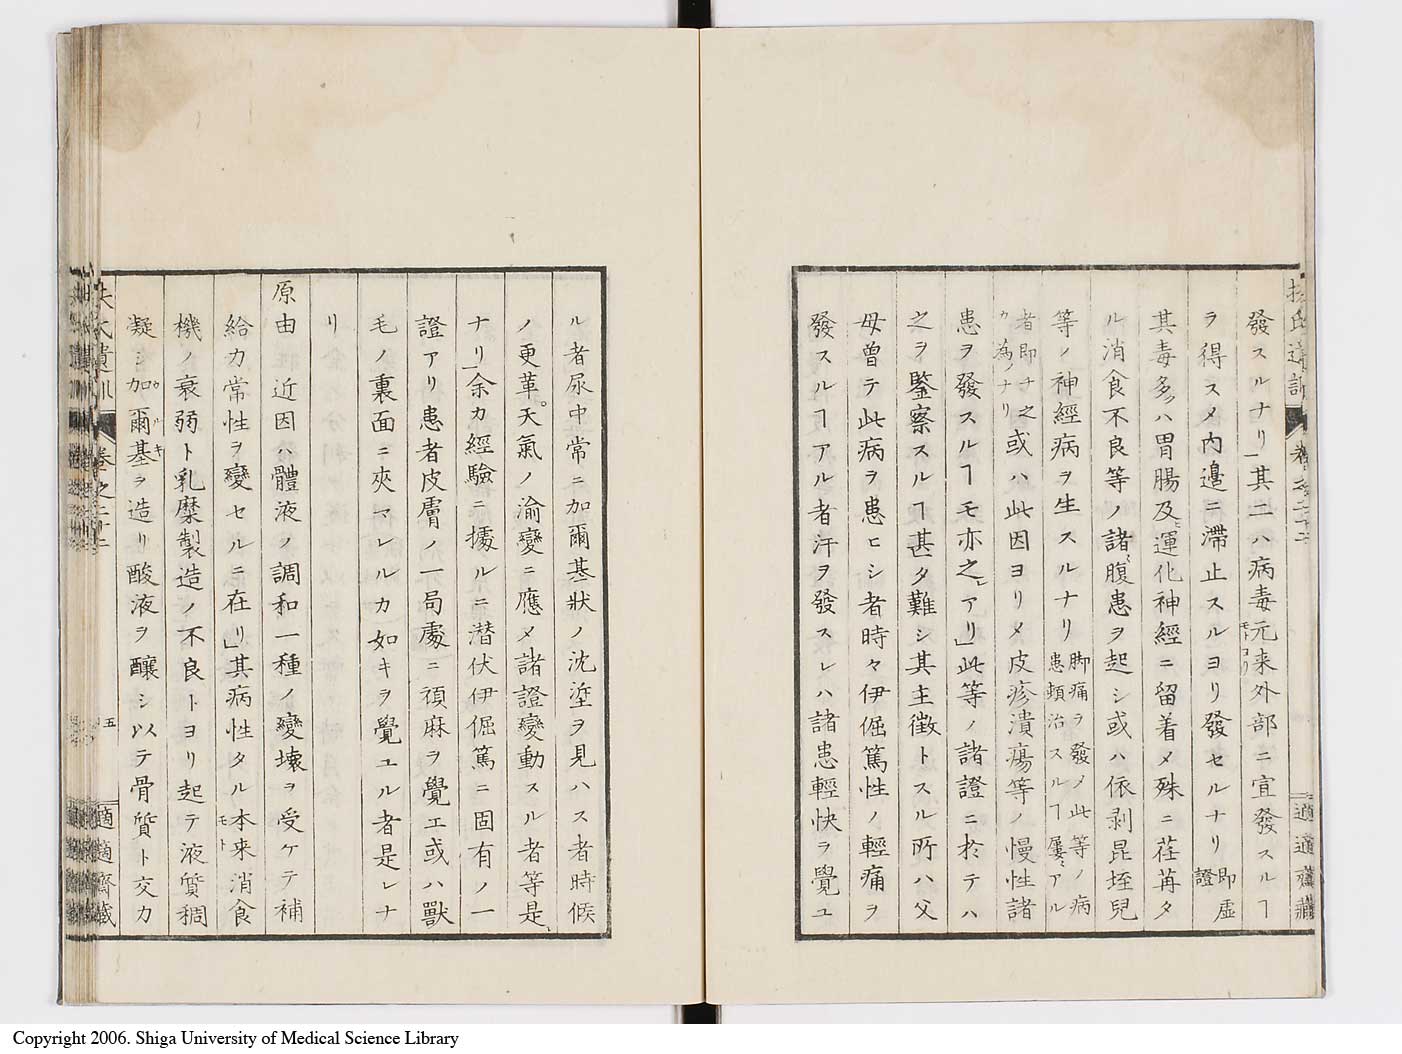 發スルナリ」其二ハ病毒元来外部ニ宜發スルヿ
ヲ得スメ内邊ニ滯止スルヨリ發セルナリ即虚證
其毒多クハ胃腸及ヒ運化神經ニ留着メ殊ニ荏苒タ
ル消食不良等ノ諸腹患ヲ起シ或ハ依剥昆垤兒
等ノ神經病ヲ生スルナリ脚痛ヲ發メ此等ノ病患頓治スルヿ屢アル
者即チ之カ為ノナリ或ハ此因ヨリメ皮疹潰瘍等ノ慢性諸
患ヲ發スルヿモ亦之アリ」此等ノ諸證ニ於テハ
之ヲ鑒察スルヿ甚タ難シ其主徴トスル所ハ父
母曽テ此病ヲ患ヒシ者時々伊倔篤性ノ輕痛ヲ
發スルヿアル者汗ヲ發スレハ諸患輕快ヲ覺ユ
ル者尿中常ニ加爾基狀ノ沈垽ヲ見ハス者時候
ノ更革天氣ノ渝變ニ應メ諸證變動スル者等是
ナリ」余カ經驗ニ據ルニ潜伏伊倔篤ニ固有ノ一
證アリ患者皮膚ノ一局處ニ頑麻ヲ覺エ或ハ獸
毛ノ裏面ニ夾マレルカ如キヲ覺ユル者是レナ
リ
原由 近因ハ體液ノ調和一種ノ變壊ヲ受ケテ補
給力常性ヲ變セルニ在リ」其病性タル本来消食
機ノ衰弱ト乳糜製造ノ不良トヨリ起テ液質稠
凝シ加爾基ヲ造リ酸液ヲ釀シ以テ骨質ト交力
扶氏遺訓 卷之二十二
五
適適齋藏